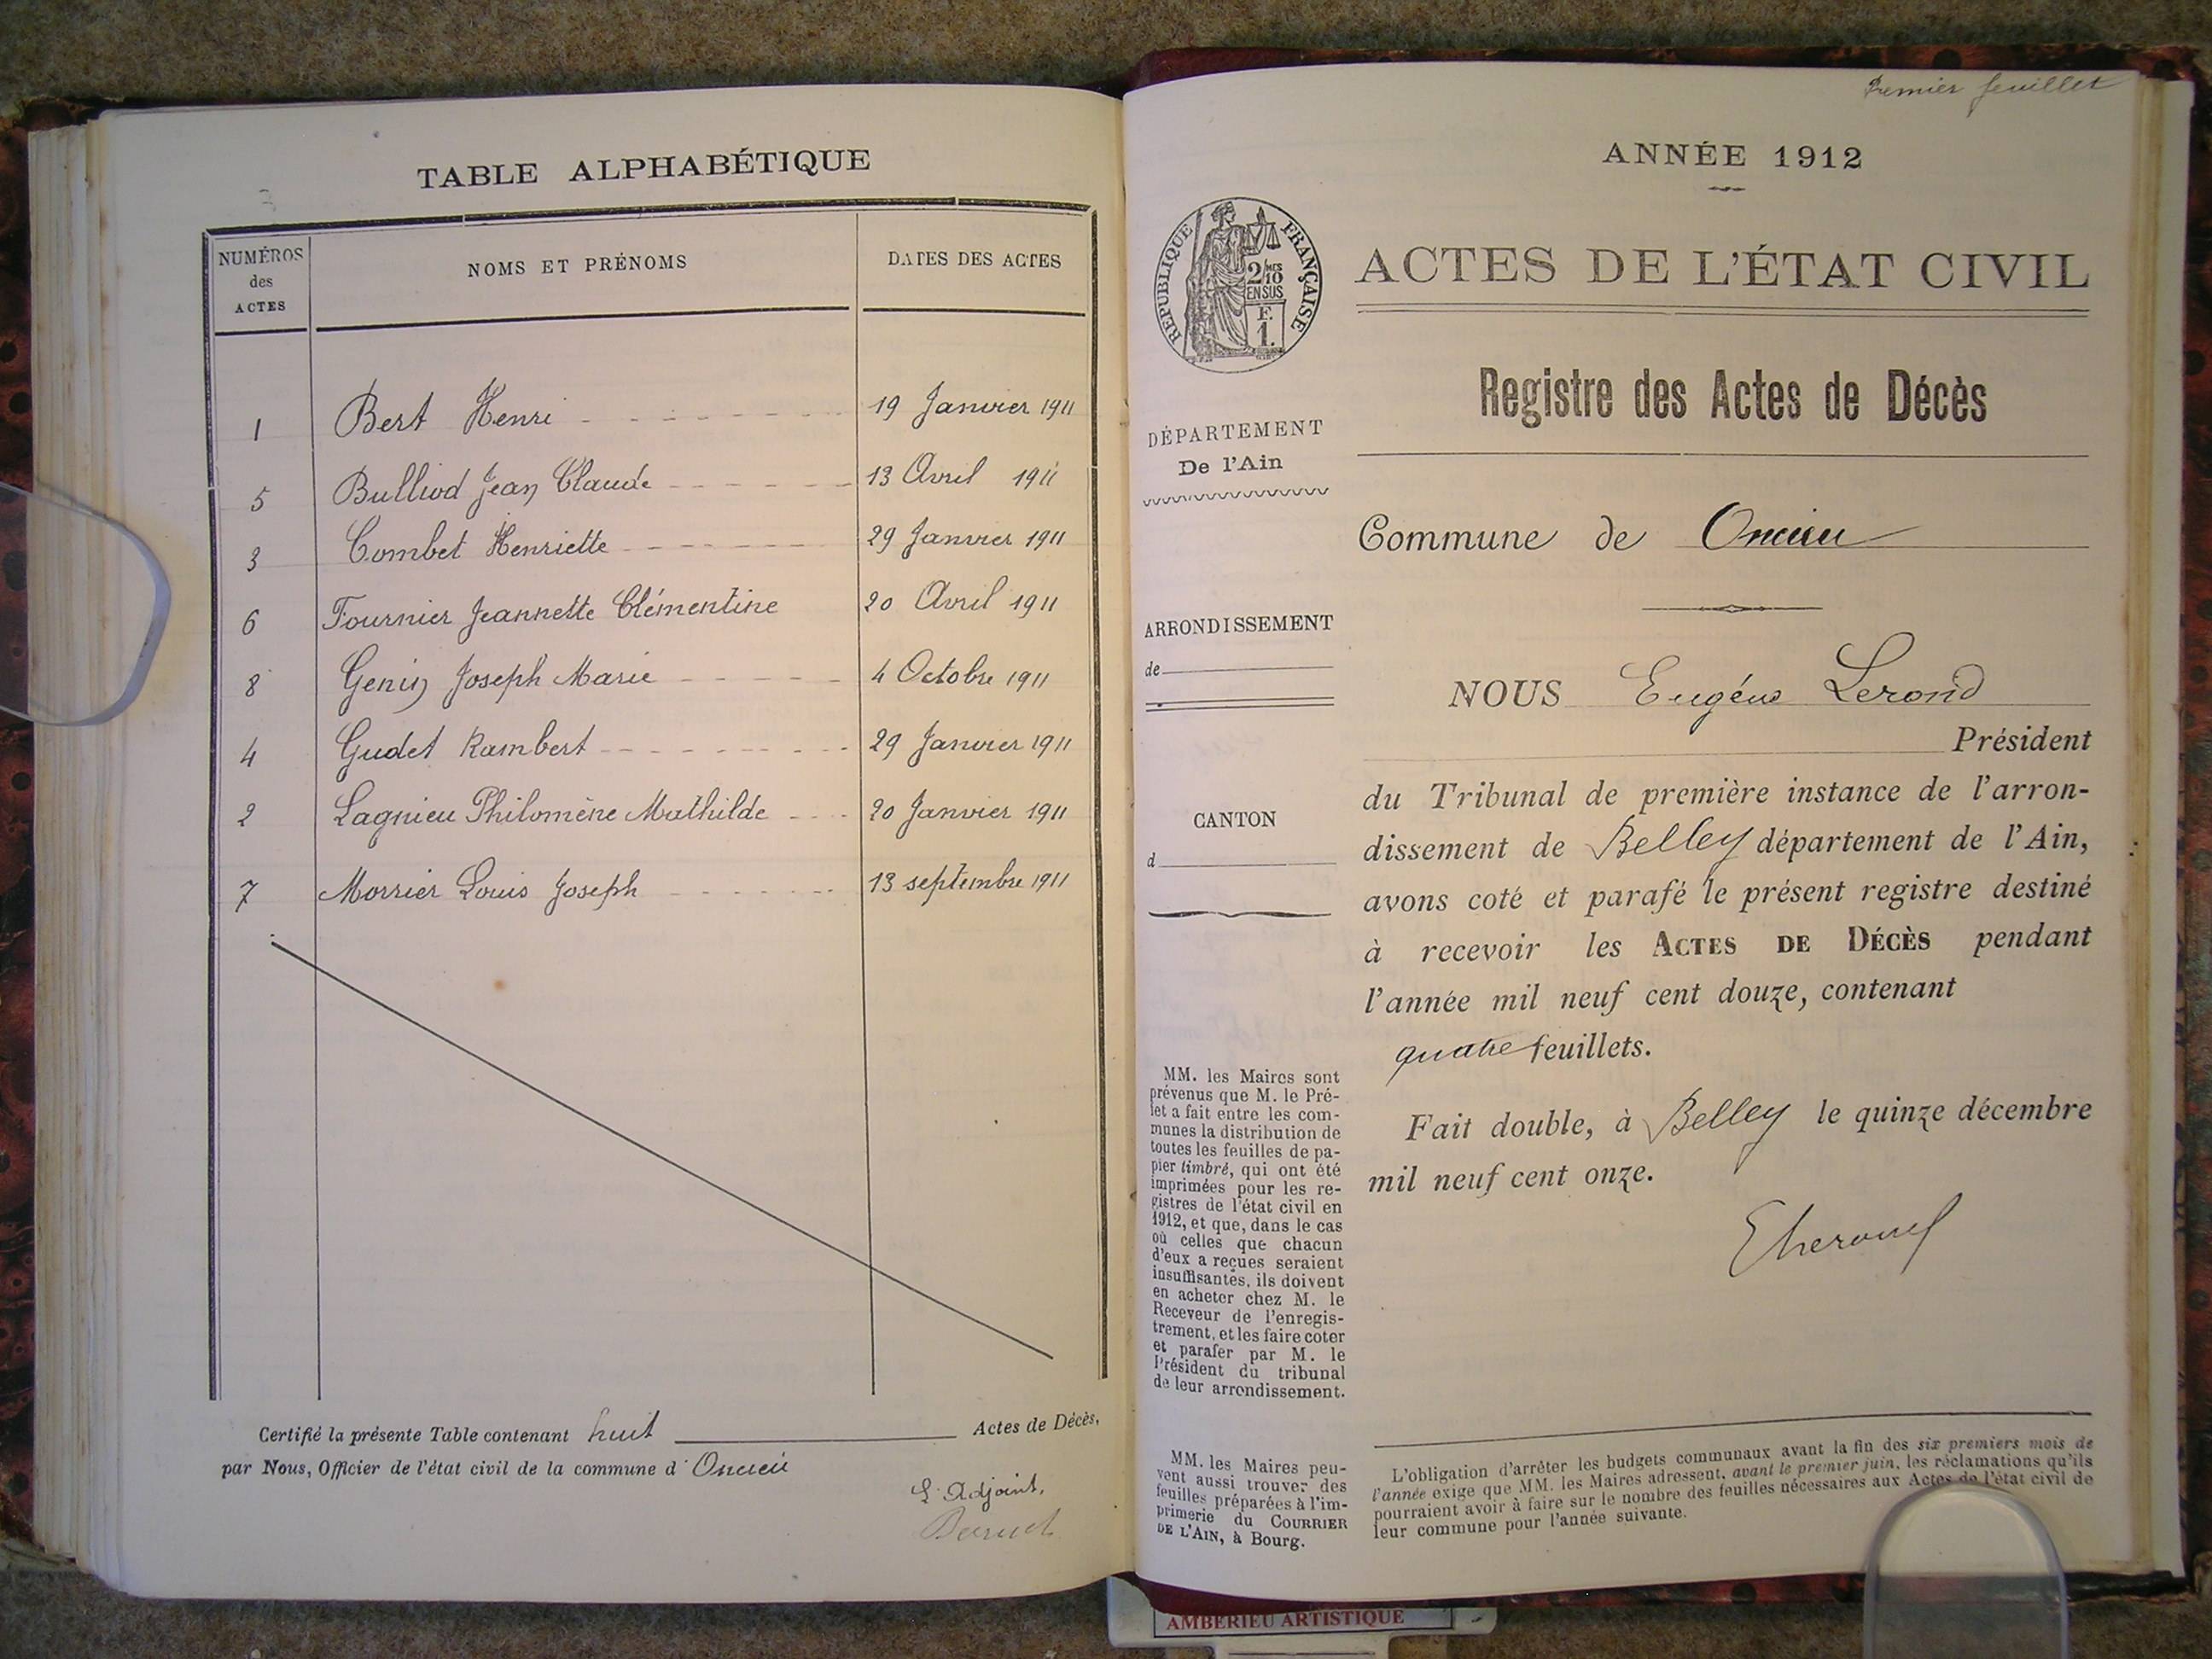 TABLE ALPHABÉTIQUE
NUMÉROS des ACTES
NOMS ET PRÉNOMS
DATES DES ACTES
1 Bert Henri 19 Janvier 1911
5 Bulliod Jean Claude 13 Avril 1911
3 Combet Henriette 29 Janvier 1911
6 Fournier Jeannette Clémentine 20 Avril 1911
8 Genin Joseph Marie 4 Octobre 1911
4 Gudet Rambert 29 Janvier 1911
2 Lagnieu Philomène Mathilde 20 Janvier 1911
7 Morrier Louis Joseph 13 septembre 1911
Certifié la présente Table contenant huit Actes de Décès,
par Nous, Officier de l'état civil de la commune d'Oncieu
L'Adjoint,
Premier feuillet
ANNÉE 1912
RÉPUBLIQUE FRANÇAISE
2/10 MES
EN SUS
F.
1.
ACTES DE L'ÉTAT CIVIL
Registre des Actes de Décès
DÉPARTEMENT
De l'Ain
Commune de Oncieu
ARRONDISSEMENT
de
CANTON
d
NOUS Eugène Lerond
Président
du Tribunal de première instance de l'arron-
dissement de Belley département de l'Ain,
avons coté et parafé le présent registre destiné
à recevoir les ACTES DE DÉCÈS pendant
l'année mil neuf cent douze, contenant
quatre feuillets.
Fait double, à Belley le quinze décembre
mil neuf cent onze.
MM. les Maires sont
prévenus que M. le Pré-
fet a fait entre les com-
munes la distribution de
toutes les feuilles de pa-
pier timbré, qui ont été
imprimées pour les re-
gistres de l'état civil en
1912, et que, dans le cas
où celles que chacun
d'eux a reçues seraient
insuffisantes, ils doivent
en acheter chez M. le
Receveur de l'enregis-
trement, et les faire coter
et parafer par M. le
Président du tribunal
de leur arrondissement.
MM. les Maires peu-
vent aussi trouver des
feuilles préparées à l'im-
primerie du COURRIER
DE L'AIN, à Bourg.
L'obligation d'arrêter les budgets communaux avant la fin des six premiers mois de
l'année exige que MM. les Maires adressent, avant le premier juin, les réclamations qu'ils
pourraient avoir à faire sur le nombre des feuilles nécessaires aux Actes de l'état civil de
leur commune pour l'année suivante.
AMBERIEU ARTISTIQUE